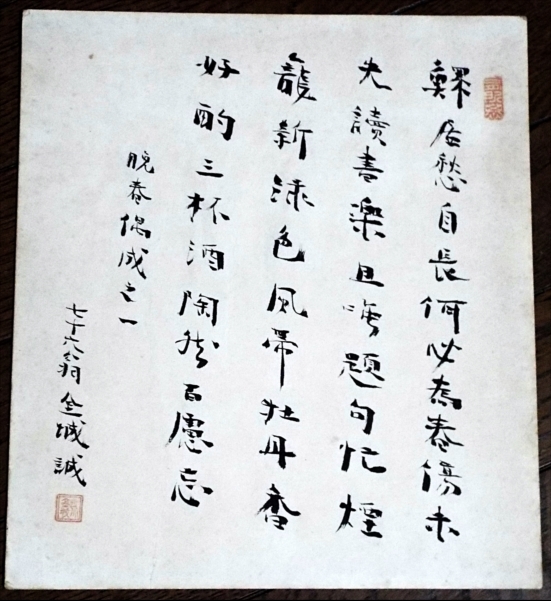 鰥居愁自長何必為春傷未
失讀書樂且題句忙煙
籠新緑色風帶牡丹香
好酌三杯酒陶然百慮忘
晩春偶成之一
七十六翁金城誠